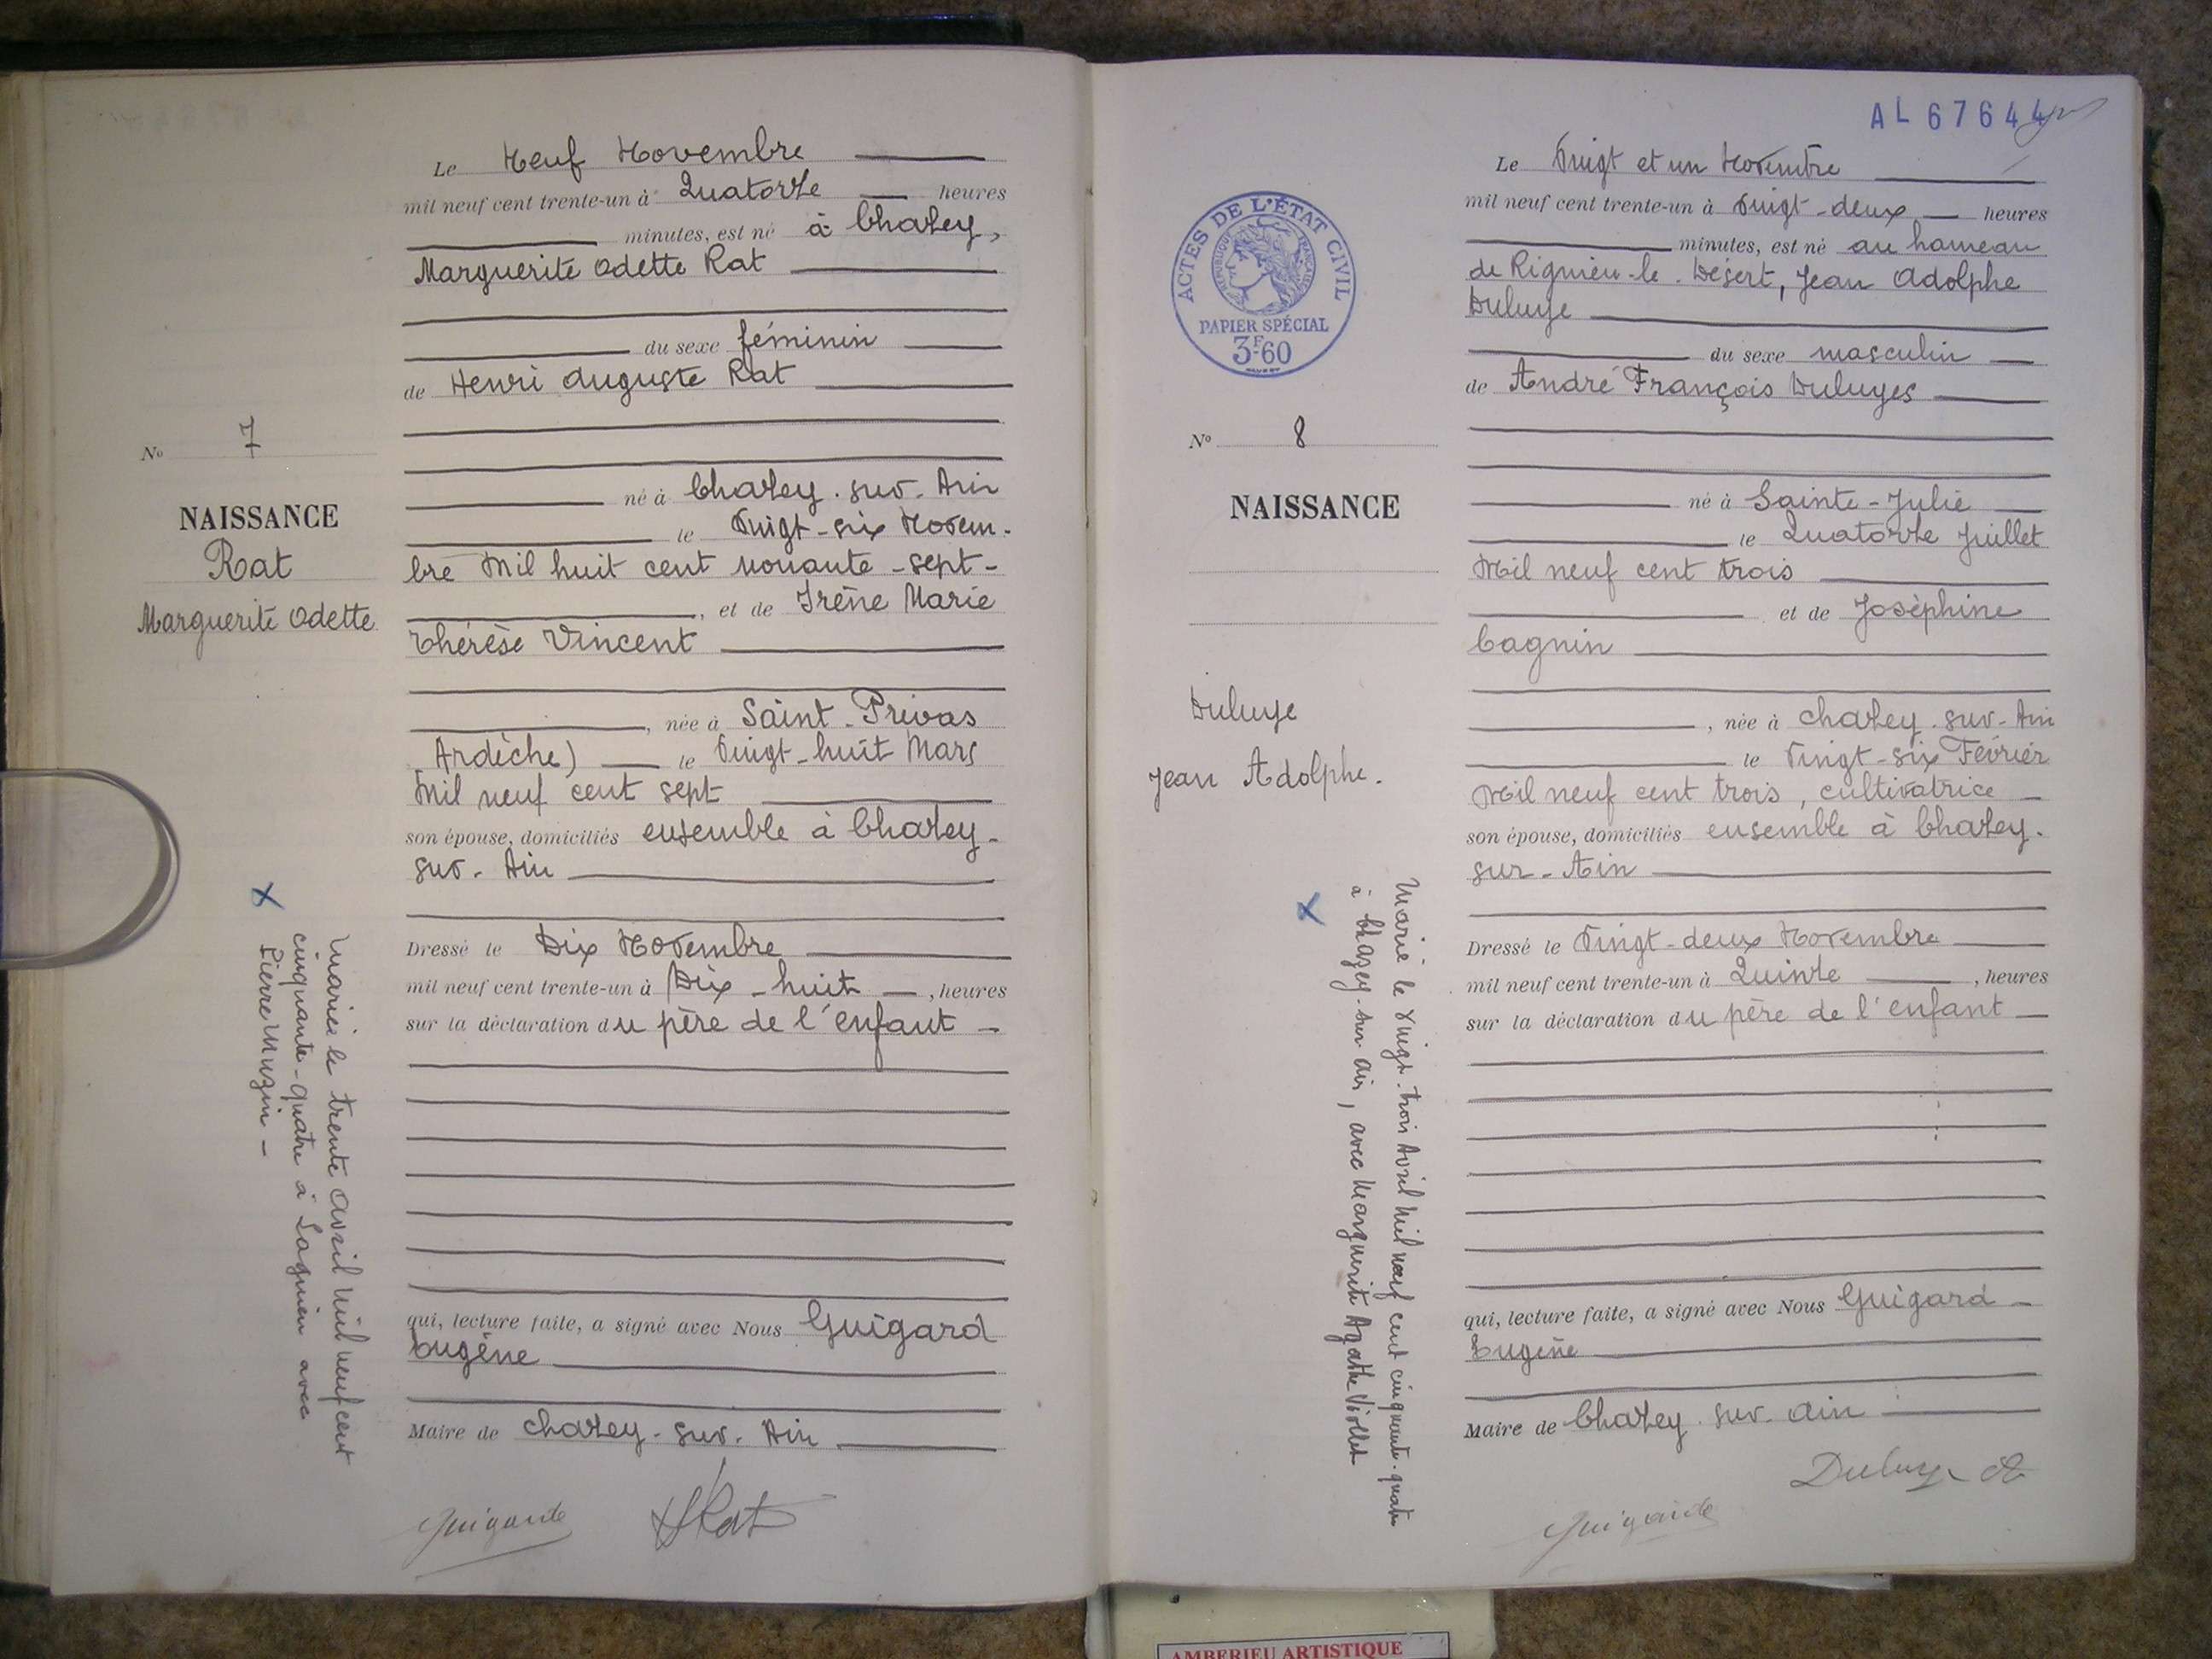 Le Neuf Novembre
mil neuf cent trente-un à Quatorze heures
minutes, est né à Chazey,
Marguerite Odette Rat
du sexe féminin
de Henri Auguste Rat
né à Chazey-sur-Ain
le Vingt-six Novem-
bre Mil huit cent nonante-sept-
, et de Irène Marie
Thérèse Vincent
, née à Saint-Privas
Ardèche) le Vingt-huit Mars
Mil neuf cent sept
son épouse, domiciliés ensemble à Chazey-
sur-Ain
Dressé le Dix Novembre
mil neuf cent trente-un à Dix-huit , heures
sur la déclaration du père de l'enfant
qui, lecture faite, a signé avec Nous Guigard
Eugène
Maire de Chazey-sur-Ain
Guigarde HRat
No 7
NAISSANCE
Rat
Marguerite Odette
x
Mariée le trente avril mil neuf cent
cinquante-quatre à Lagnieu avec
Pierre Muzin -
AL 67644
ACTES DE L'ÉTAT CIVIL
RÉPUBLIQUE FRANÇAISE
PAPIER SPÉCIAL
3F.60
No 8
NAISSANCE
Duluye
Jean Adolphe.
x
Marié le vingt-trois Avril mil neuf cent cinquante-quatre
à Chazey-sur-Ain, avec Marguerite Agathe Viollet
Le Vingt et un Novembre
mil neuf cent trente-un à Vingt-deux heures
minutes, est né au hameau
de Rignieu-le-Désert, Jean Adolphe
Duluye
du sexe masculin
de André François Duluyes
né à Sainte-Julie
le Quatorze Juillet
Mil neuf cent trois
et de Joséphine
Cagnin
, née à Chazey-sur-Ain
le Vingt-six Février
Mil neuf cent trois, cultivatrice
son épouse, domiciliés ensemble à Chazey-
sur-Ain
Dressé le Vingt-deux Novembre
mil neuf cent trente-un à Quinze , heures
sur la déclaration du père de l'enfant
qui, lecture faite, a signé avec Nous Guigard
Eugène
Maire de Chazey-sur-Ain
Duluye
Guigarde
AMBERIEU ARTISTIQUE